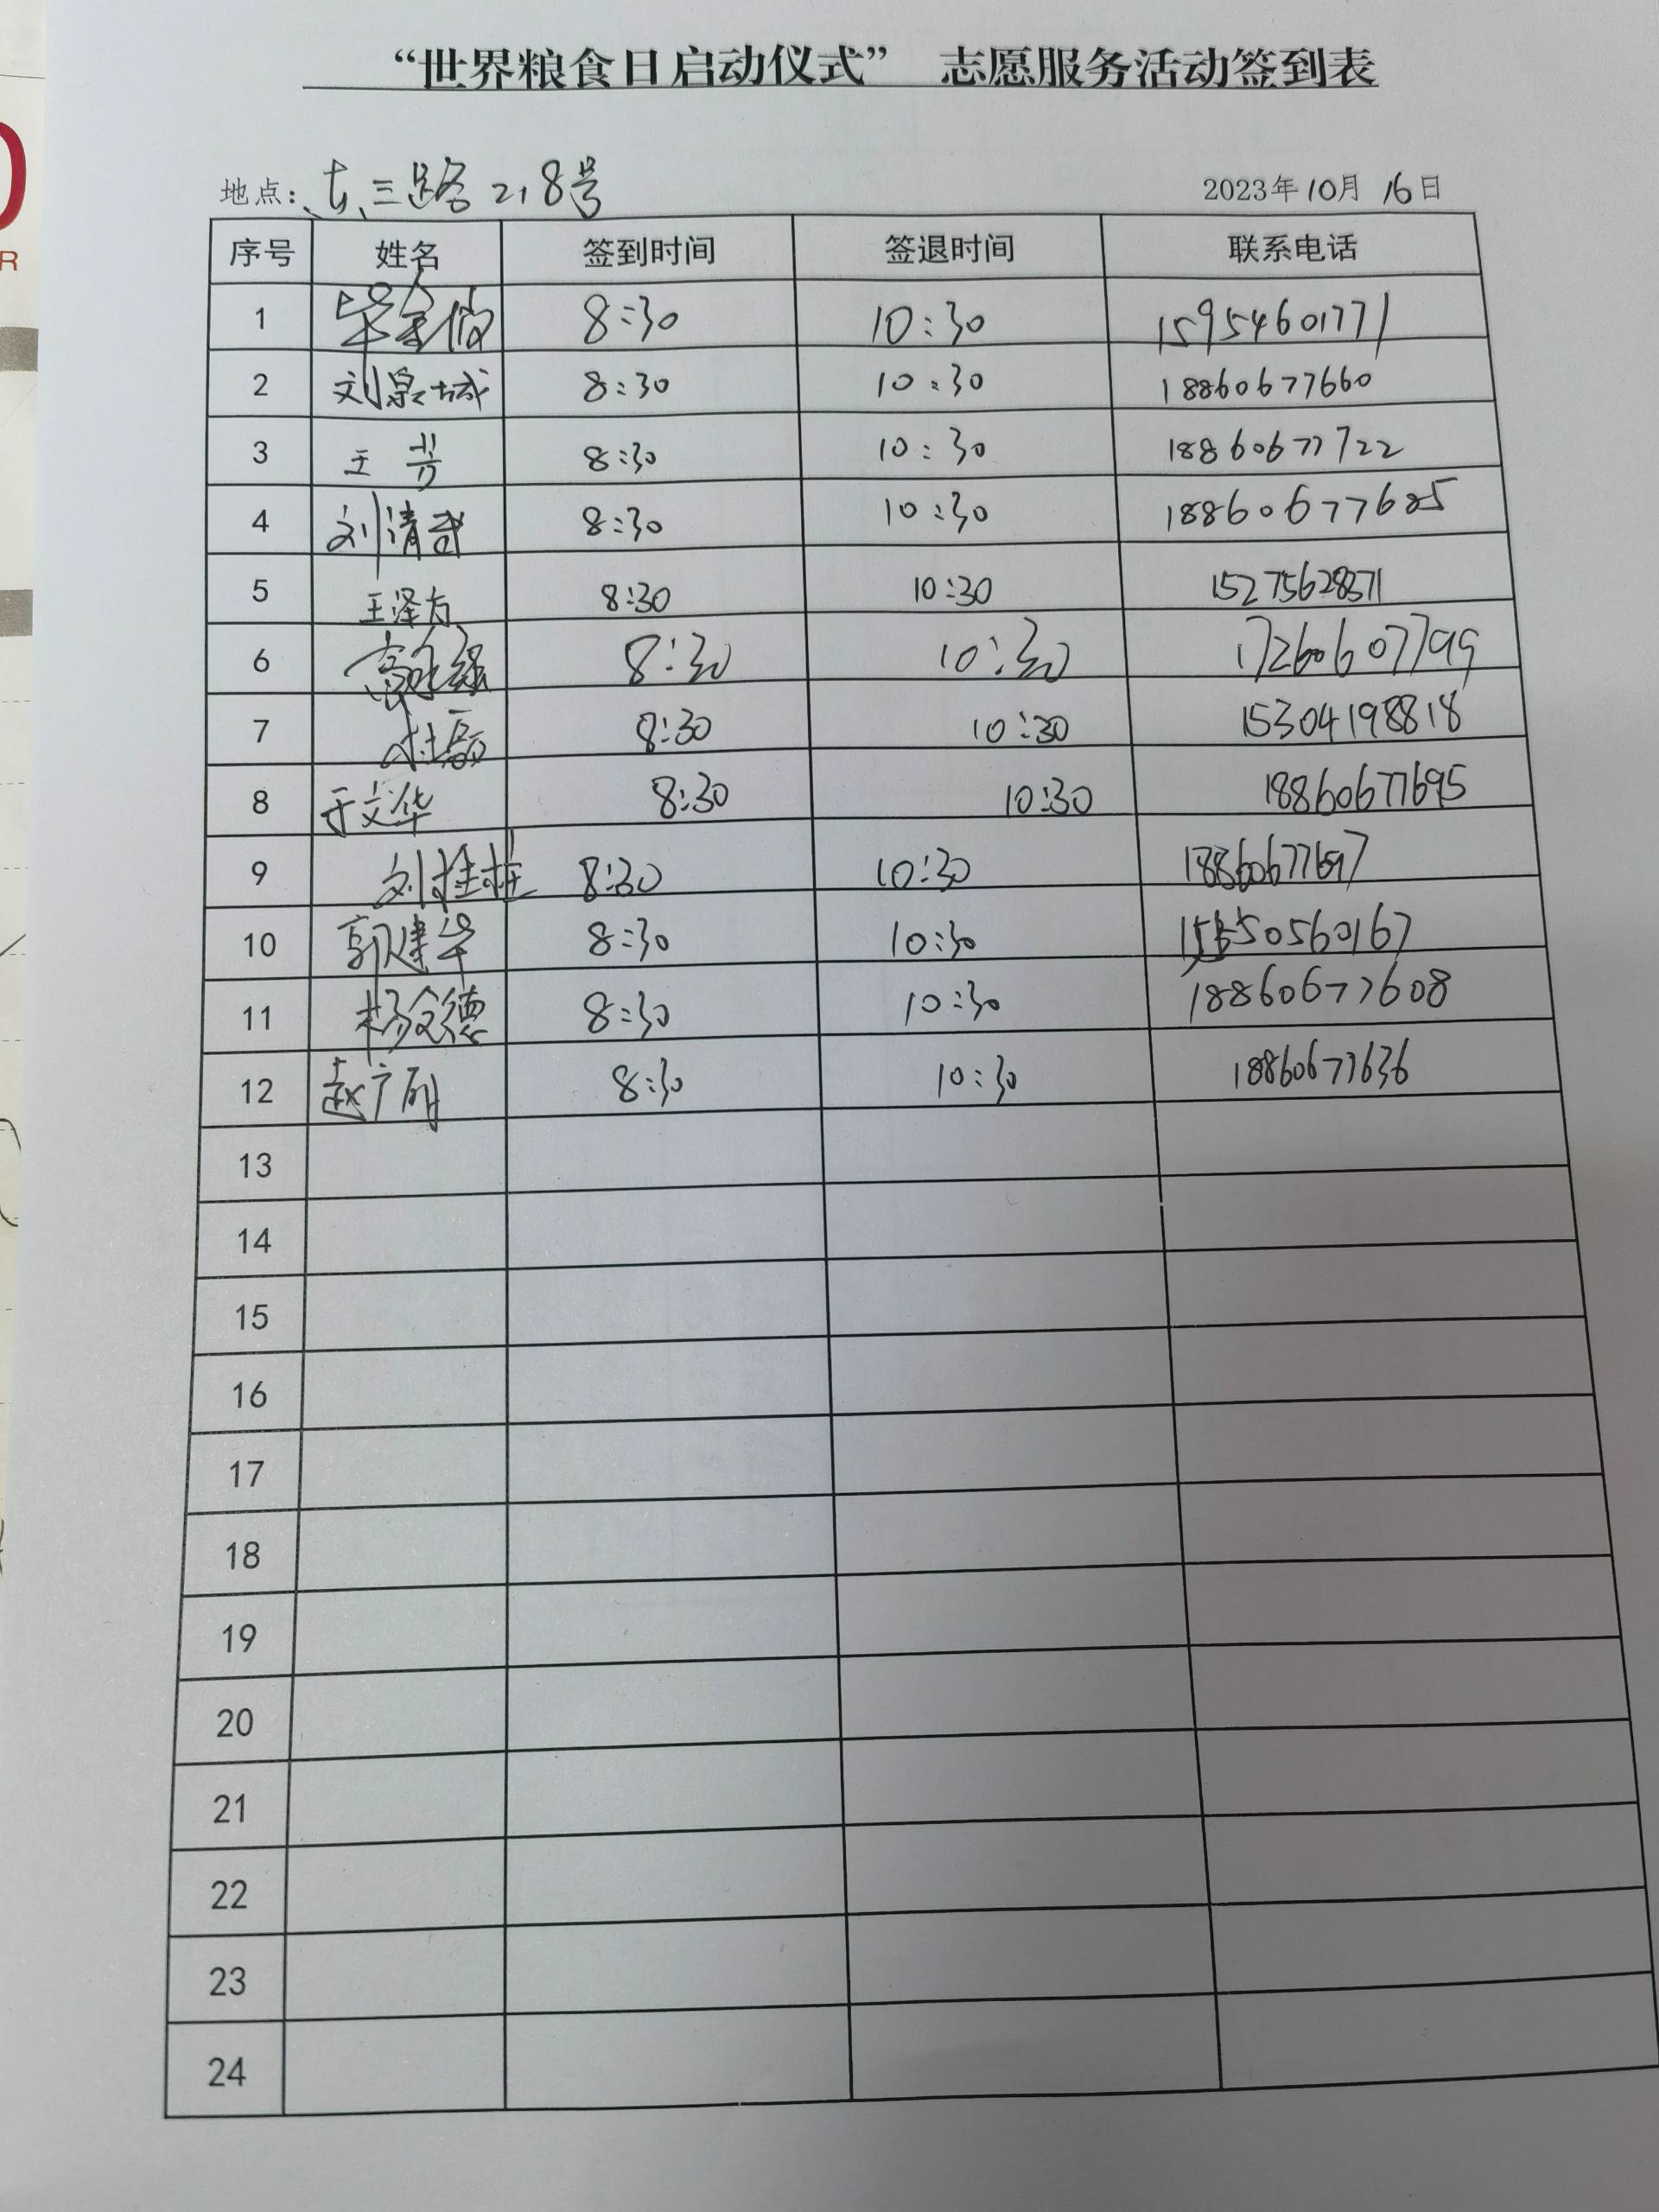 “世界粮食日启动仪式” 志愿服务活动签到表
地点: 东三路218号 2023年10月16日
序号 姓名 签到时间 签退时间 联系电话
1 8:30 10:30 15954601771
2 刘泉城 8:30 10:30 18860677660
3 王芳 8:30 10:30 18860677722
4 刘清武 8:30 10:30 18860677685
5 王泽方 8:30 10:30 15275628371
6 高永强 8:30 10:30 17260607799
7 杜磊 8:30 10:30 15304198818
8 于文华 8:30 10:30 18860677695
9 刘桂柱 8:30 10:30 18860677697
10 郭建华 8:30 10:30
11 杨文德 8:30 10:30 18860677608
12 赵广刚 8:30 10:30 18860677636
13
14
15
16
17
18
19
20
21
22
23
24